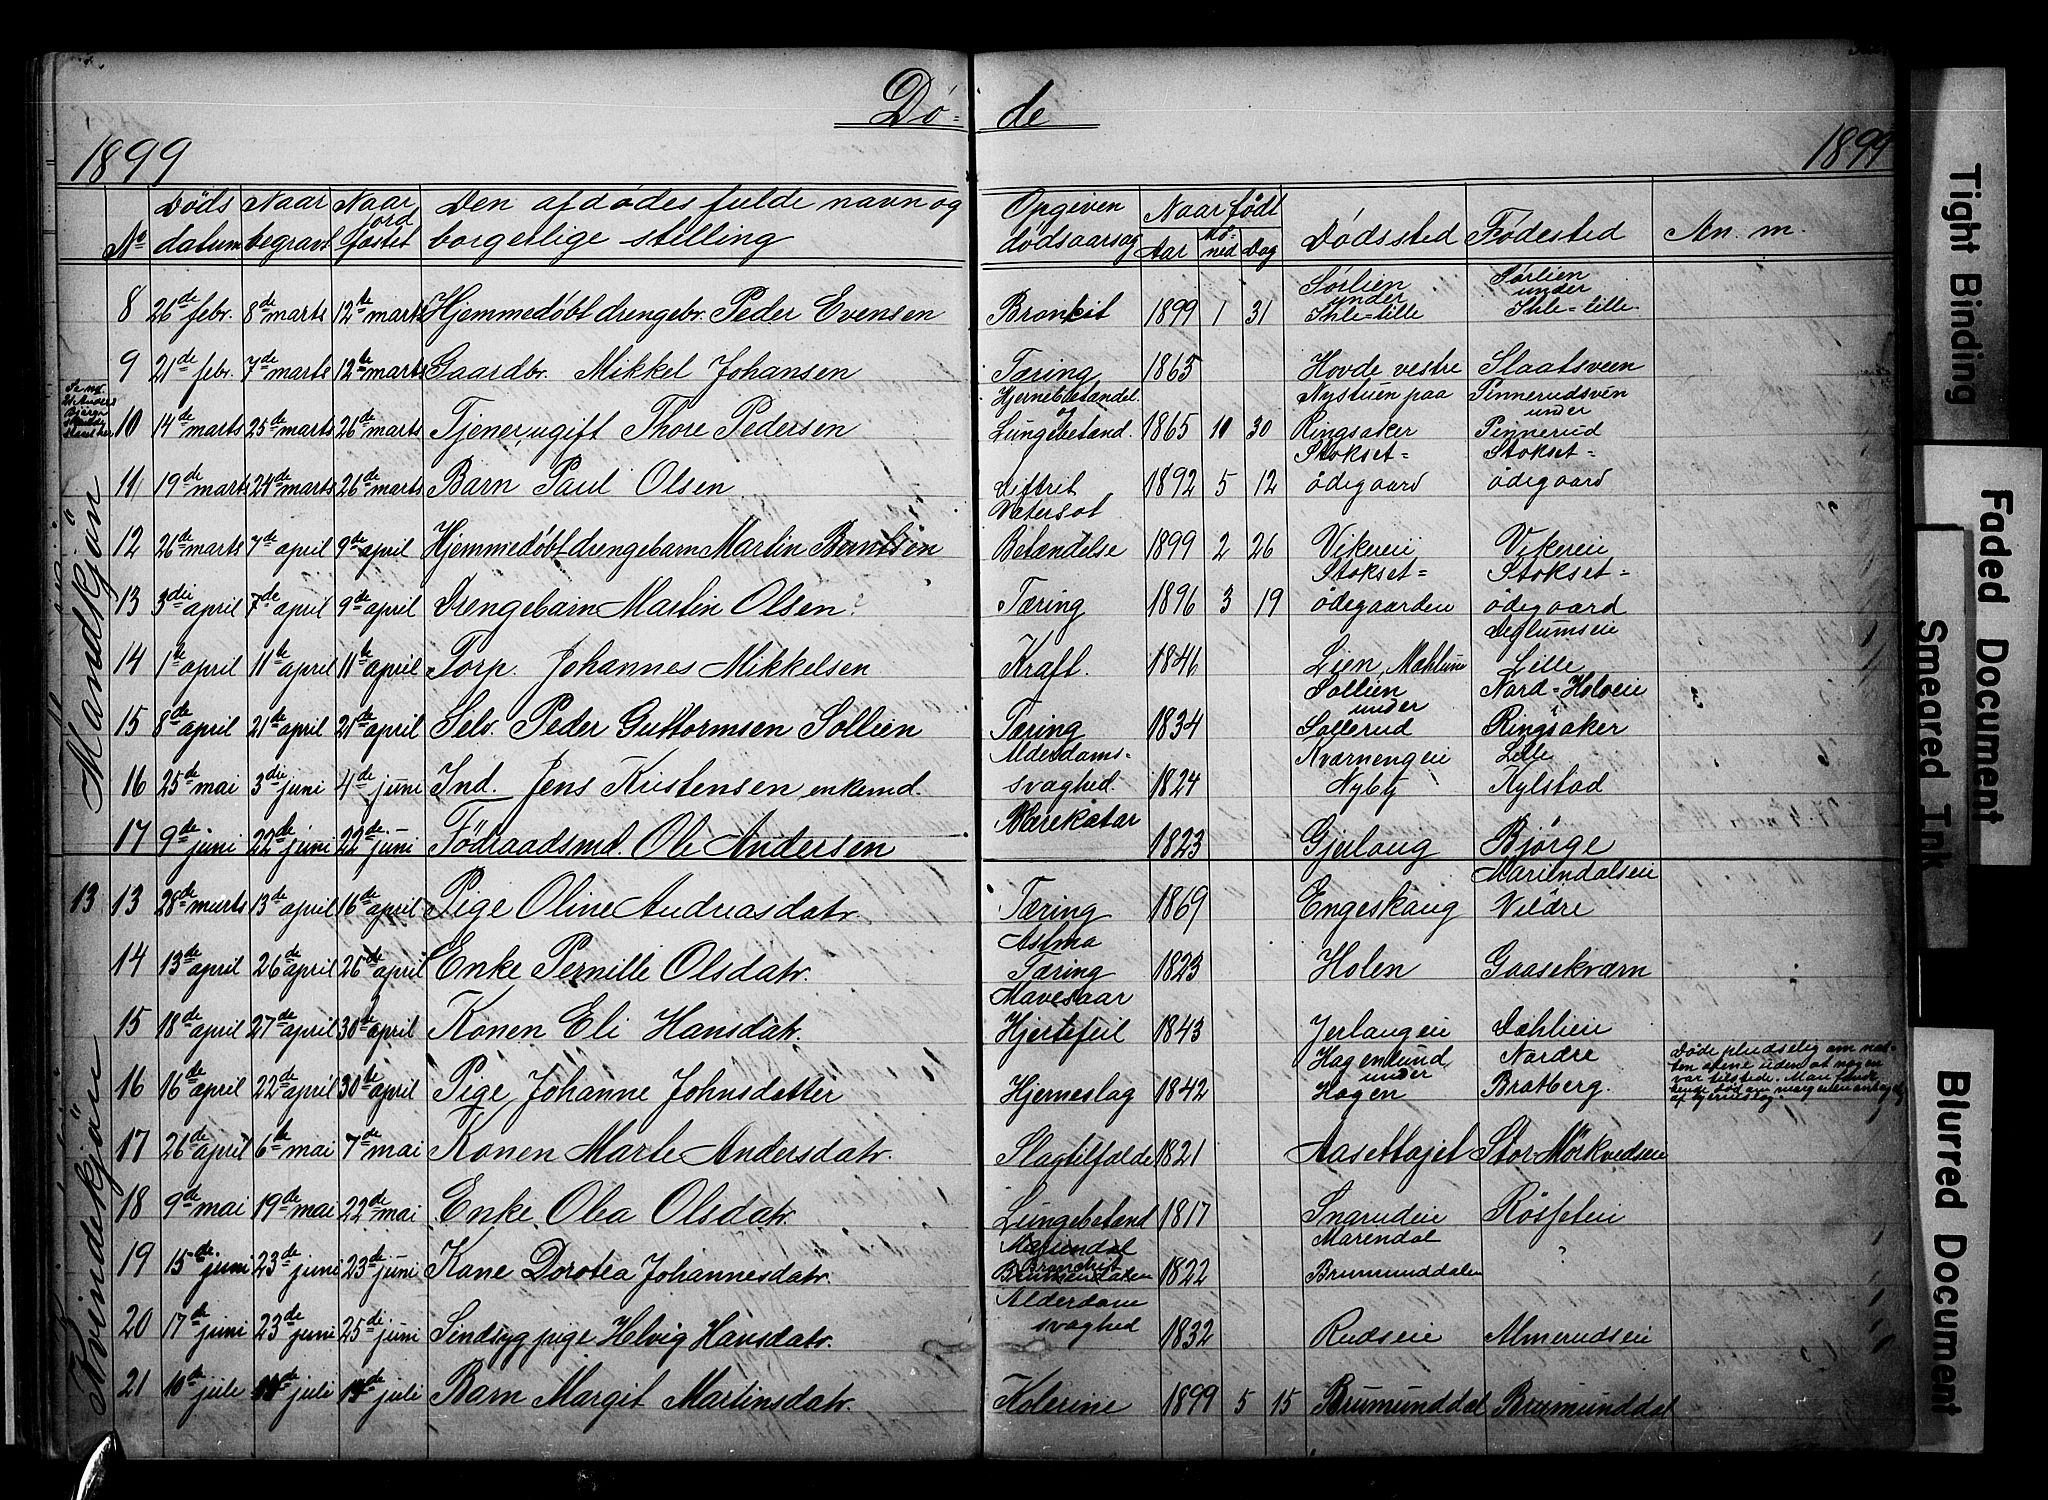 Dø= de
1899 1899
No Døds datum Naar begravt Naar jord fæstet Den afdødes fulde navn og borgerlige stilling Opgiven dødsaarsag Naar født Aar Må-ned Dag Dødssted Fødested An. m.
Mandkjön
8 26de febr. 8de marts 12te marts Hjemmedøbt drengebr. Peder Evensen Bronkit 1899 1 31 Sørlien under Ihle=lille Sørlien under Ihle=lille
9 21de febr. 7de marts 12te marts Gaardbr. Mikkel Johansen Tæring 1865 Hovde vestre Slaatsveen
10 14de marts 25de marts 26de marts Tjener ugift Thore Pedersen Hjernebetændel. og Lungebetænd. 1865 10 30 Nystuen paa Ringsaker Pinnerudsven under Pinnerud
11 19de marts 24de marts 26de marts Barn Paul Olsen Diftrit 1892 5 12 Stokset= ødegaard Stokset= ødegaard
12 26de marts 7de april 9de april Hjemmedøbt drengebarn Martin Berntsen Vatersot Betændelse 1899 2 26 Vikereie Vikereie
13 3die april 7de april 9de april Drengebarn Martin Olsen Tæring 1896 3 19 Stokset= ødegaarden Stokset= ødegaard
14 1te april 11te april 11te april Torp. Johannes Mikkelsen Kræft. 1846 Lien, Mæhlum Deglumseie Lille
15 8de april 21te april 21te april Selv. Peder Guttormsen Sollien Tæring 1834 Sollien under Sollerud Nord=Holveie Ringsaker
16 25de mai 3die juni 4de juni Ind. Jens Kristensen enkemd. Alderdoms-svaghed. 1824 Kværnengeie Nyby Lille Kylstad
17 9de juni 22de juni 22de juni Födraadsmd. Ole Andersen Blærekatar 1823 Gjerlaug Bjørge
Kvindekjön
13 13 28de marts 13de april 16de april Pige Oline Andreasdatr. Tæring 1869 Engeskaug Mariendalseie Veldre
14 13de april 26de april 26de april Enke Pernille Olsdatr. Astma Tæring 1823 Holen Gaasekværn
15 18de april 27de april 30te april Konen Eli Hansdatr. Mavesaar Hjertefeil 1843 Jerlaugeie Dæhlien
16 16de april 22de april 30te april Pige Johanne Johnsdatter Hjerneslag 1842 Hagenlund under Hagen Nordre Bratberg. Døde pludselig om nat-ten alene uden at nogen var tilstede. Man fandt hende død om morgenen antagelig af hjerneslag.
17 26de april 6te mai 7de mai Konen Marte Andersdatr. Slagtilfælde 1821 Aasettajet Stor-Mörkvedseie
18 9de mai 19de mai 22de mai Enke Olea Olsdatr. Lungebetænd 1817 Snarudeie Røsseteie
19 15de juni 23de juni 23de juni Kone Dorotea Johannesdatr. Mariendal Bronchit Brumunddalen 1822 Marendal Brumunddalen
20 17de juni 23de juni 25de juni Sindsyg pige Helvig Hansdatr. Alderdom svaghed 1832 Rudseie Almerudseie
21 10de juli 14de juli 14de juli Barn Margit Martinsdatr. Kolerine 1899 5 15 Brumunddal Brumunddal
Tight Binding
Faded Document
Smeared Ink
Blurred Document